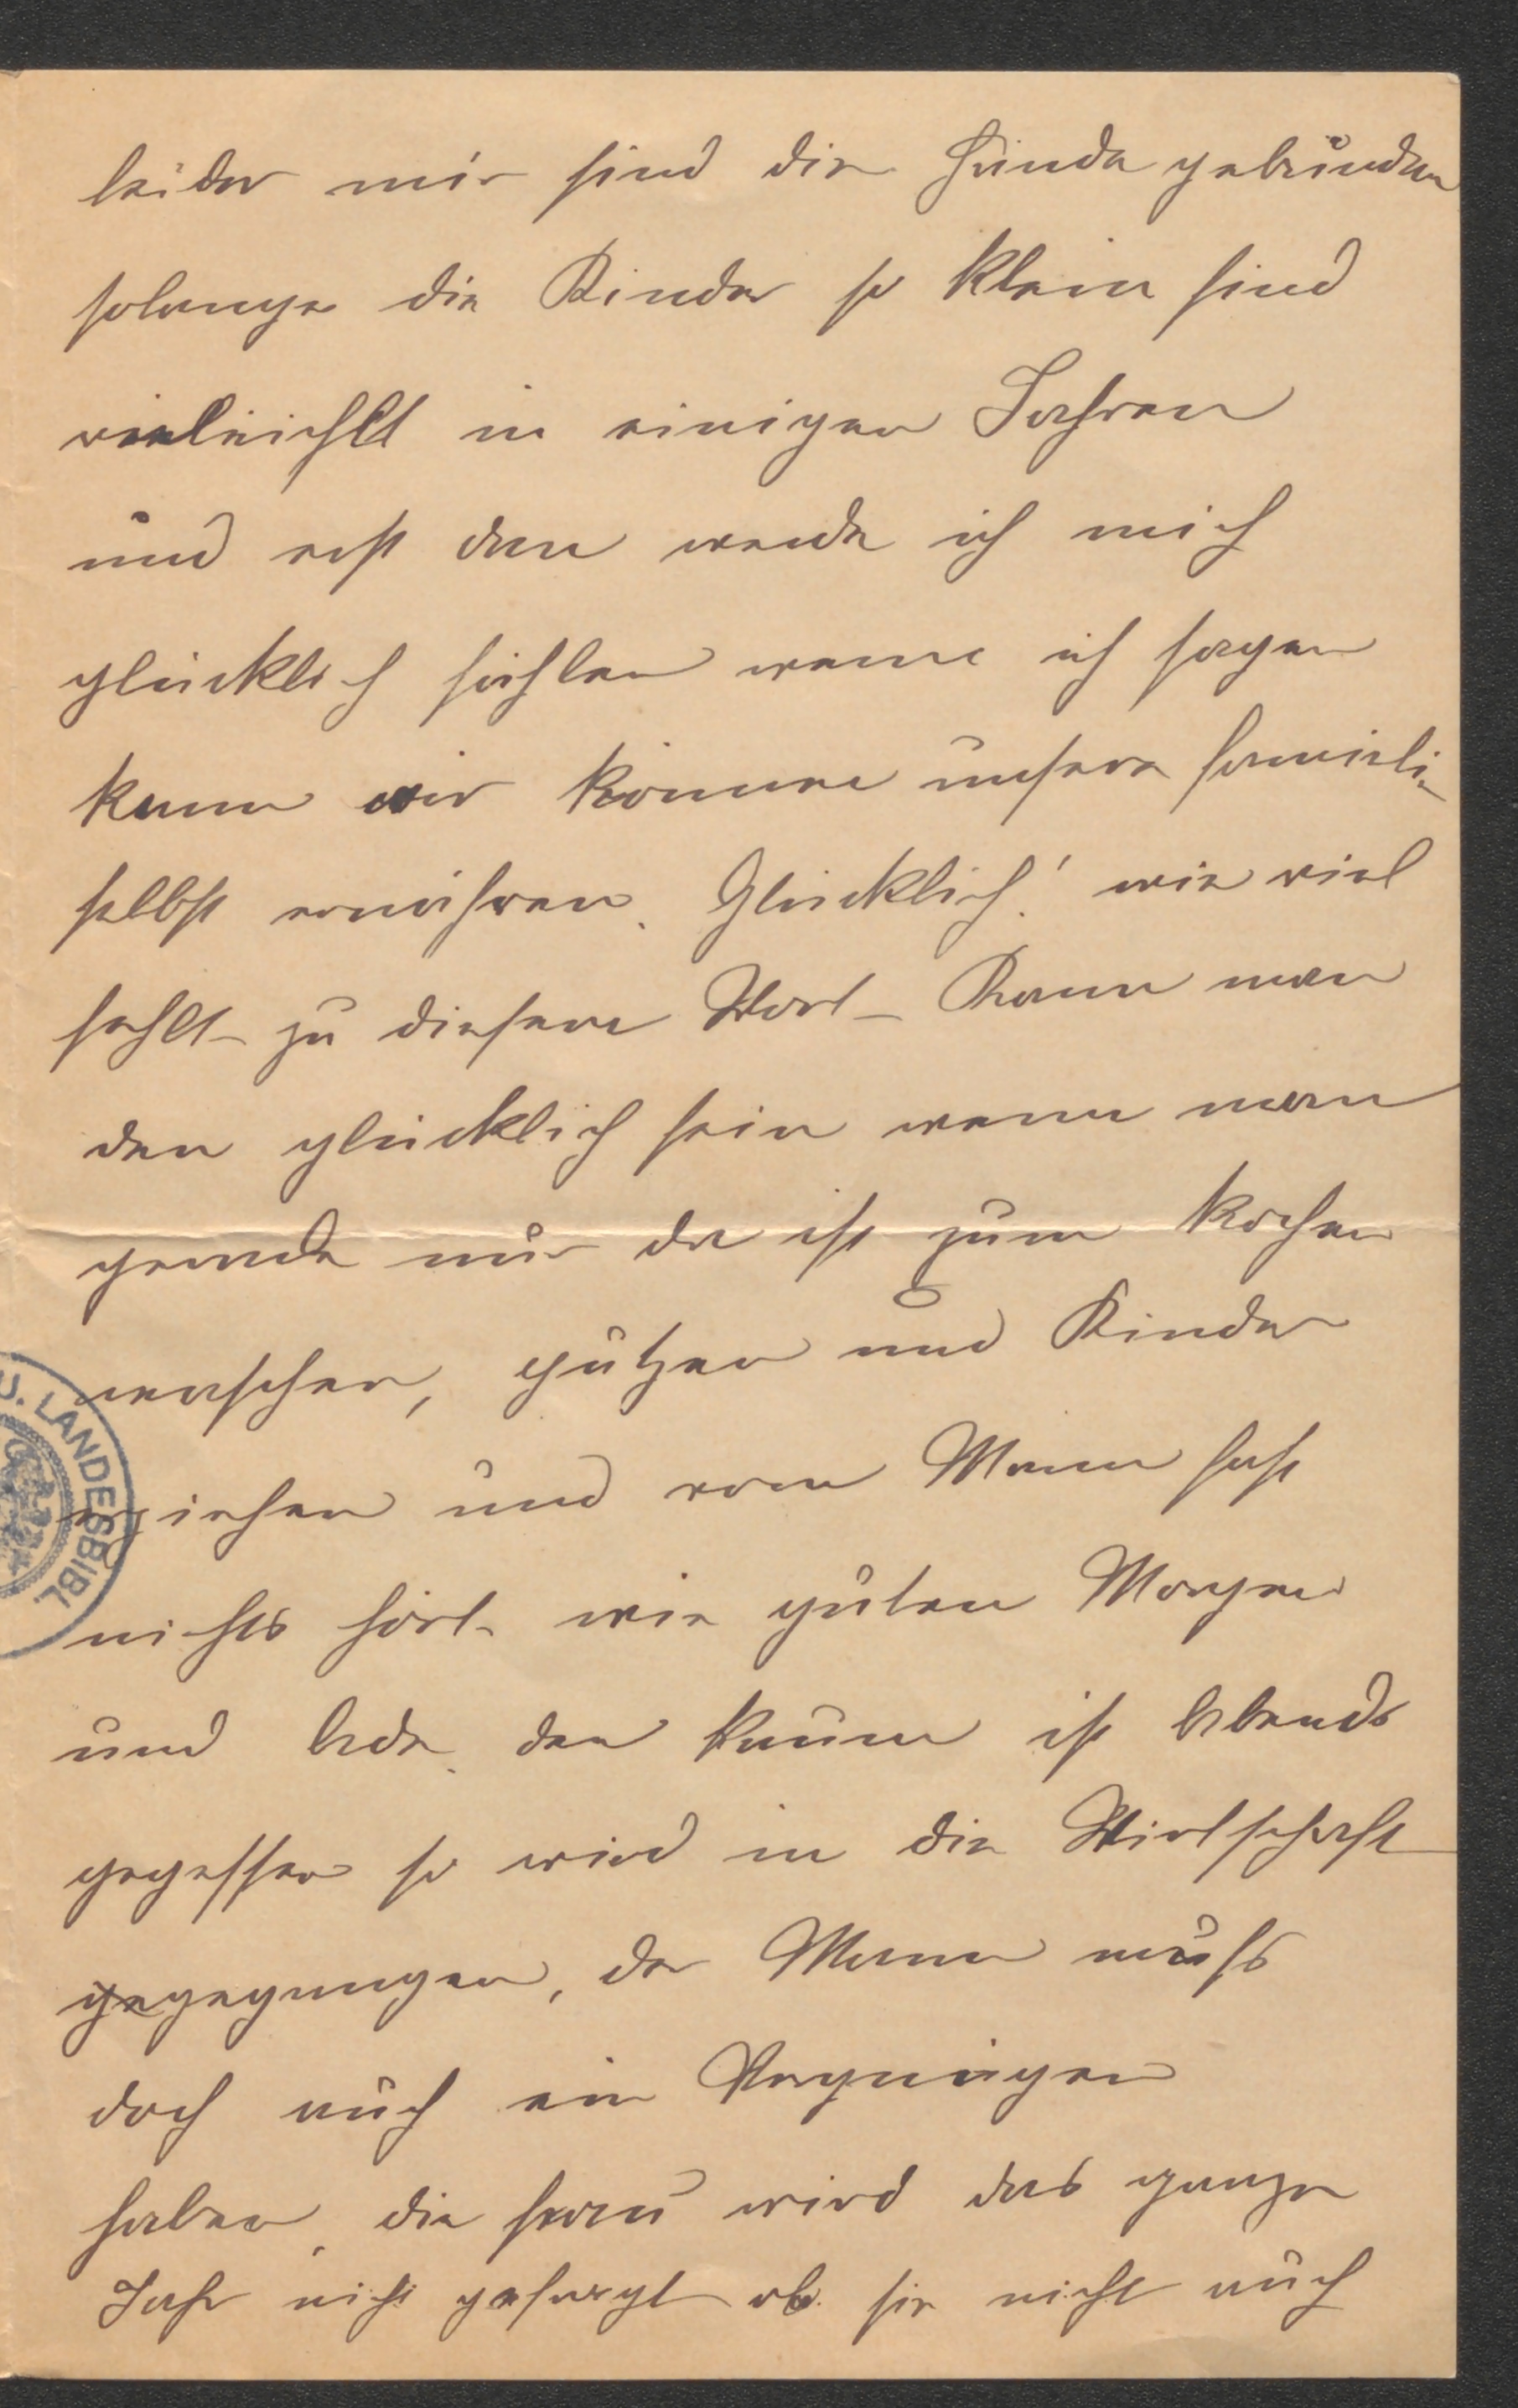 leider mir sind die Hände gebunden
solange die Kinder so klein sind
vieleichtt in einigen Jahren
und erst dan werde ich mich
glücklich fühlen wenn ich sagen
kann wir können unsere famieli-
selbst ernähren. Glücklich! wie viel
fehlt zu diesem Wort Kann man
den glücklich sein wenn man
gerade nur da ist zum kochen
waschen, putzen und Kinder
erziehen und vom Mann fast
nichts hört wie guten Morgen
und Ade. den kaum ist Abends
gegessen so wird in die Wirtschaft
gegegangen, der Mann muss
doch auch ein Vergnügen
haben, die frau wird das ganze
Jahr nicht gefragt ob sie nicht auch
U. LANDESBIBL.